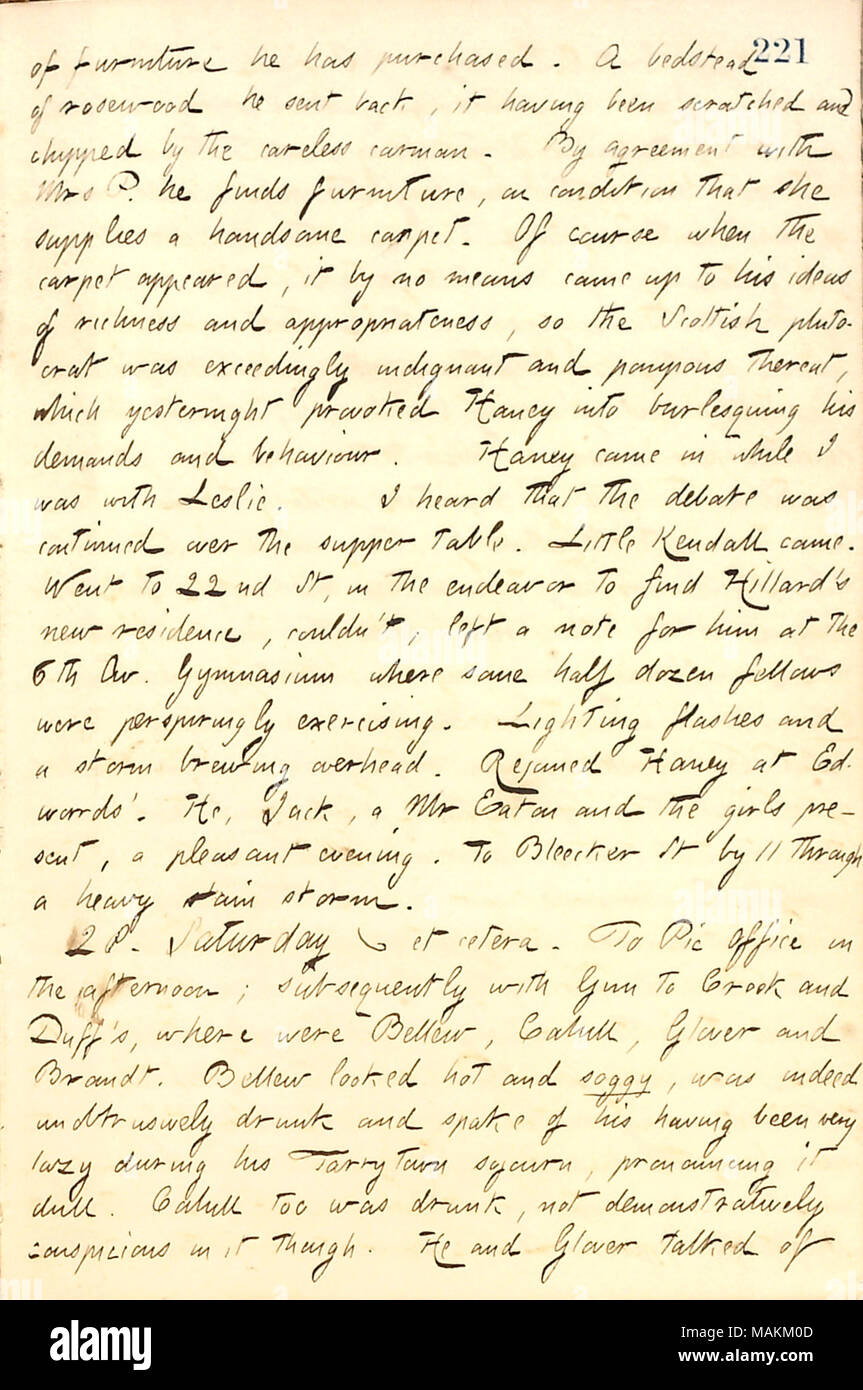 221
of furniture he has purchased. A bedstead
of rosewood he sent back, it having been scratched and
chipped by the careless carman. By agreement with
Mrs P. he finds furniture, on condition that she
supplies a handsome carpet. Of course when the
carpet appeared, it by no means came up to his ideas
of richness and appropriateness, so the Scottish pluto-
crat was exceedingly indignant and pompous thereat,
which yesternight provoked Haney into burlesquing his
demands and behaviour. Haney came in while I
was with Leslie. I heard that the debate was
continued over the supper table. Little Kendall came.
Went to 22nd St, in the endeavor to find Hillard's
new residence, couldn't, left a note for him at the
6th Av. Gymnasium where some half dozen fellows
were perspiringly exercising. Lighting flashes and
a storm brewing overhead. Rejoined Haney at Ed-
wards'. He, Jack, a Mr Eaton and the girls pre-
sent, a pleasant evening. To Bleecker St by 11 through
a heavy rain storm.
2 P. Saturday et cetera. To Pic Office in
the afternoon; subsequently with Gun to Crook and
Duff's, where were Bellew, Cahill, Glover and
Brandt. Bellew looked hot and soggy, was indeed
unobtrusively drunk and spake of his having been very
lazy during his Tarrytown sojourn, pronouncing it
dull. Cahill too was drunk, not demonstratively
conspicious in it though. He and Glover talked of
alamy
Image ID: MAKM0D
www.alamy.com